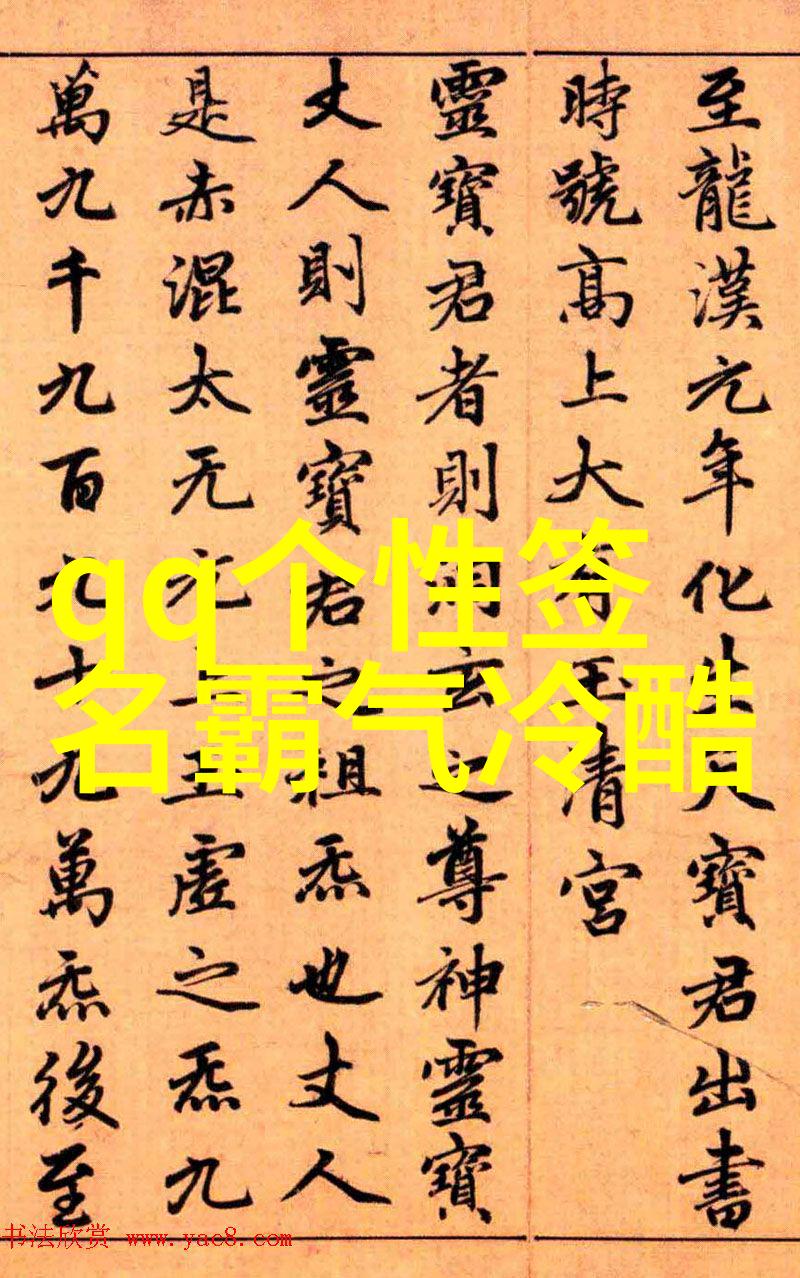 至龍漢元年化生天寶君出書
時號高上大有玉清宮
靈寶君者則洞玄之尊神靈寶
丈人則靈寶君之祖炁也丈人
是赤混太无元上玉虛之炁九
萬九千九百九十九萬炁後至
qq个性签
名霸气冷酷
书法欣赏 www.yac8.com